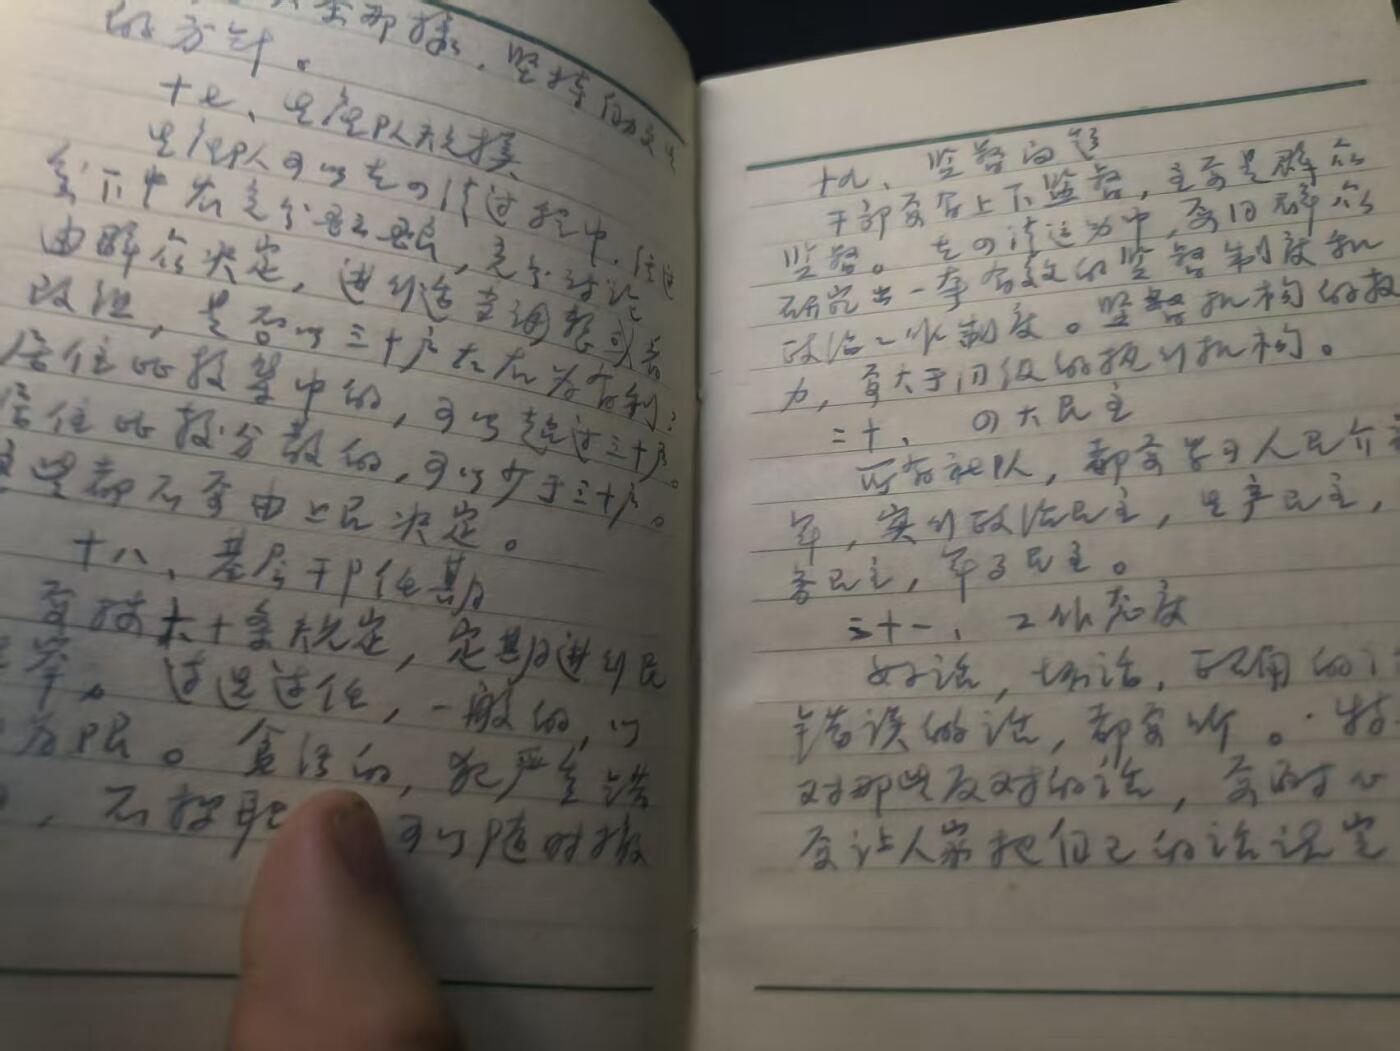 那样，坚持自力更生
的方针。
十七、生产队规模
生产队可以在四清过程中，经过
条下中农充分酝酿，充分讨论
由群众决定，进行适当调整或者
改组，是否以三十户左右为有利：
居住比较集中的，可以超过三十户。
居住比较分散的，可以少于三十户。
这些都不要由上民决定。
十八、基层干部任期
要按六十条规定，定期进行民
选举。连选连任，一般的，以
为限。贪污的，犯严重错
，不称职 可以随时撤
十九、监督问题
干部要有上下监督，主要是群众
监督。在四清运动中，要同群众
研究出一套有效的监督制度和
政治工作制度。监督机构的权
力，要大于同级的执行机构。
二十、四大民主
所有社队，都要学习人民介放
军，实行政治民主，生产民主，
务民主，军事民主。
二十一、工作态度
好话，坏话，正确的话
错误的话，都要听。特
对那些反对的话，要耐心
要让人家把自己的话说完